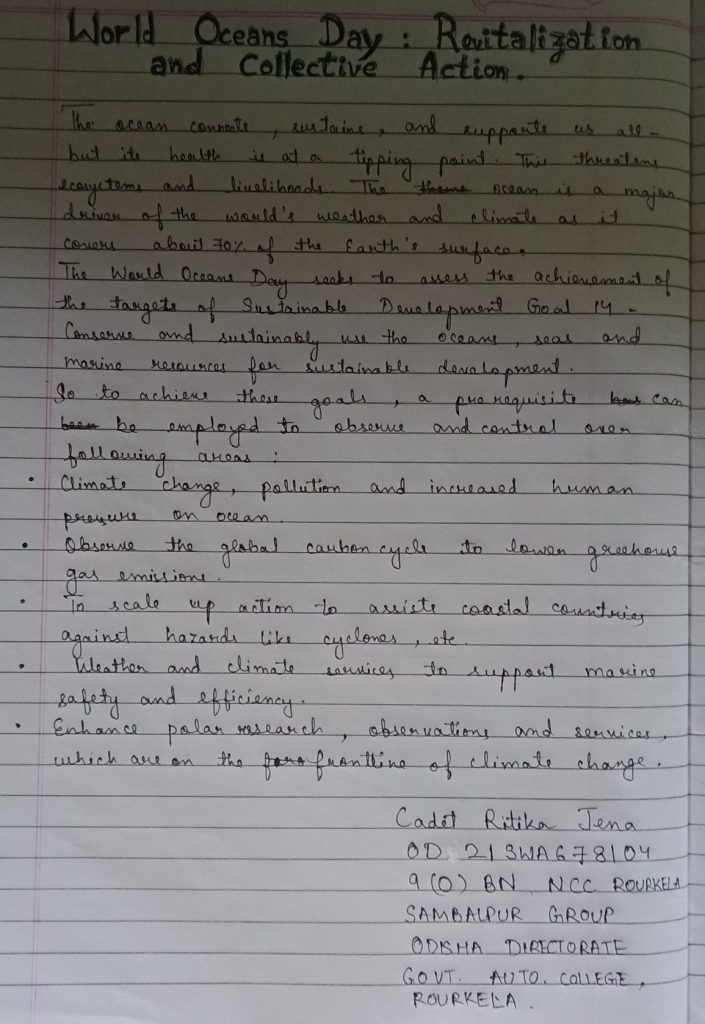 World Oceans Day : Revitalization
and Collective Action.
The ocean connects, sustains, and supports us all -
but its health is at a tipping point. This threatens
ecosystems and livelihoods. The theme ocean is a major
driver of the world's weather and climate as it
covers about 70% of the Earth's surface.
The World Oceans Day seeks to assess the achievement of
the targets of Sustainable Development Goal 14 -
Conserve and sustainably use the oceans, seas and
marine resources for sustainable development.
So to achieve these goals, a pre requisite has can
been be employed to observe and control over
following areas :
• Climate change, pollution and increased human
pressure on ocean.
• Observe the global carbon cycle to lower greehouse
gas emissions.
• To scale up action to assists coastal countries
against hazards like cyclones, etc.
• Weather and climate services to support marine
safety and efficiency.
• Enhance polar research, observations and services,
which are on the frontline of climate change.
Cadet Ritika Jena
OD 21 SWA 678104
9 (O) BN NCC ROURKELA
SAMBALPUR GROUP
ODISHA DIRECTORATE
GOVT. AUTO. COLLEGE,
ROURKELA.